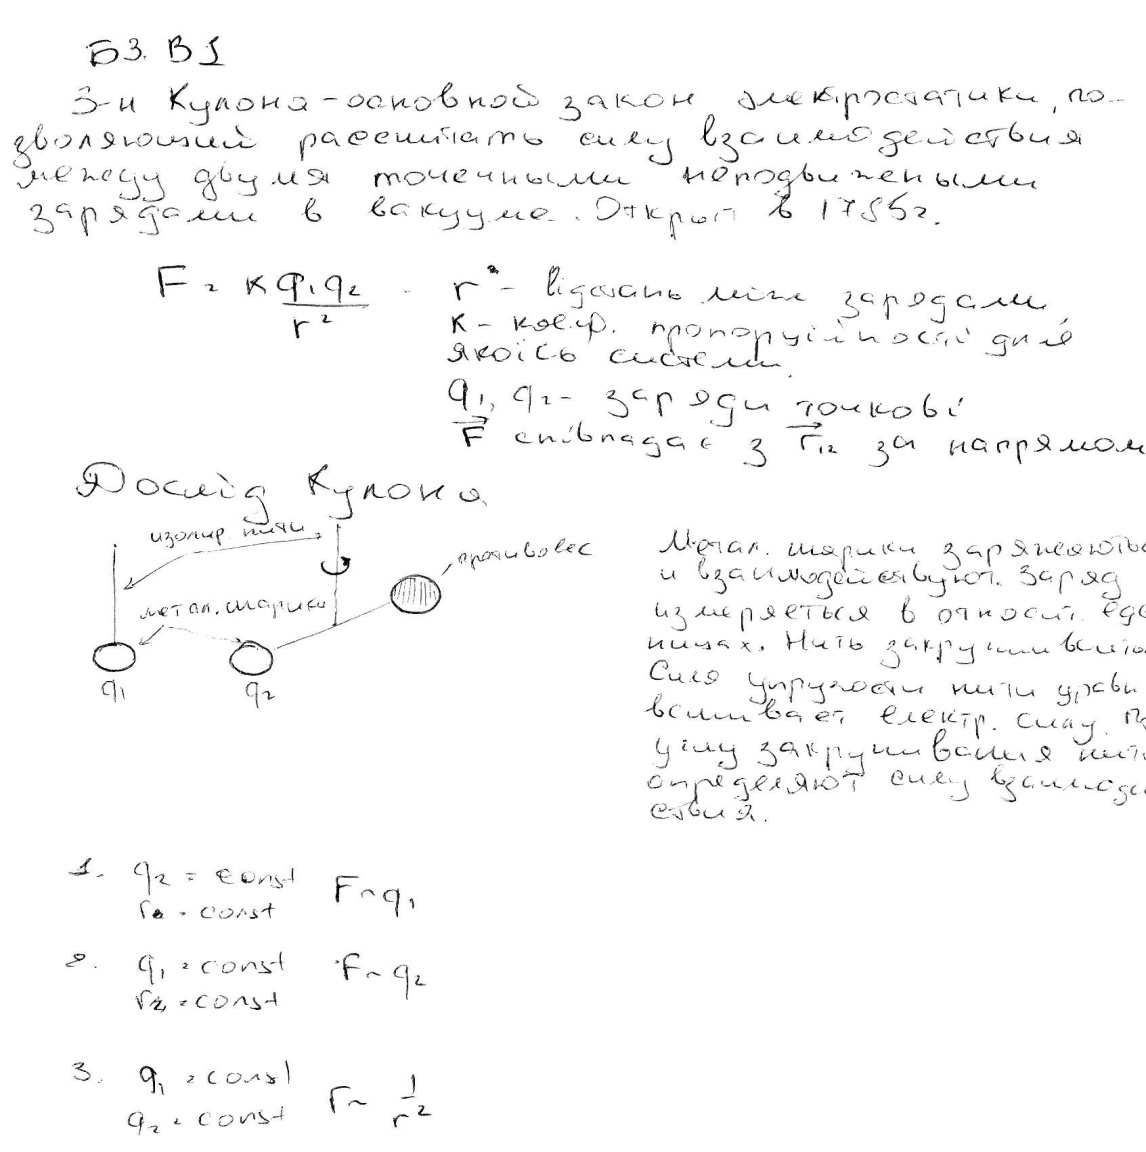 Б3. В1
З-н Кулона - основной закон электростатики, по-
зволяющий рассчитать силу взаимодействия
между двумя точечными неподвижеными
зарядами в вакууме. Открыт в 1785г.
F = k q₁q₂ / r²
r² - відстань між зарядами,
к - коеф. пропорційності для
якоїсь системи.
q₁, q₂ - заряди точкові
F⃗ співпадає з r⃗₁₂ за напрямом
Дослід Кулона
изолир. нити
противовес
метал. шарики
q₁ q₂
Метал. шарики заряжаються
и взаимодействуют. Заряд
измеряеться в относит. еди
ницах. Нить закручивается
Сила упругости нити уравн
вешивает електр. силу. По
углу закручивания нити
определяют силу взаимодей
ствия.
1. q₂ = const
r = const
F ~ q₁
2. q₁ = const
r = const
F ~ q₂
3. q₁ = const
q₂ = const
F ~ 1/r²